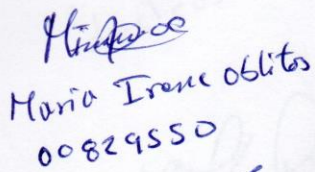 Maria Irene oblitos
00829550